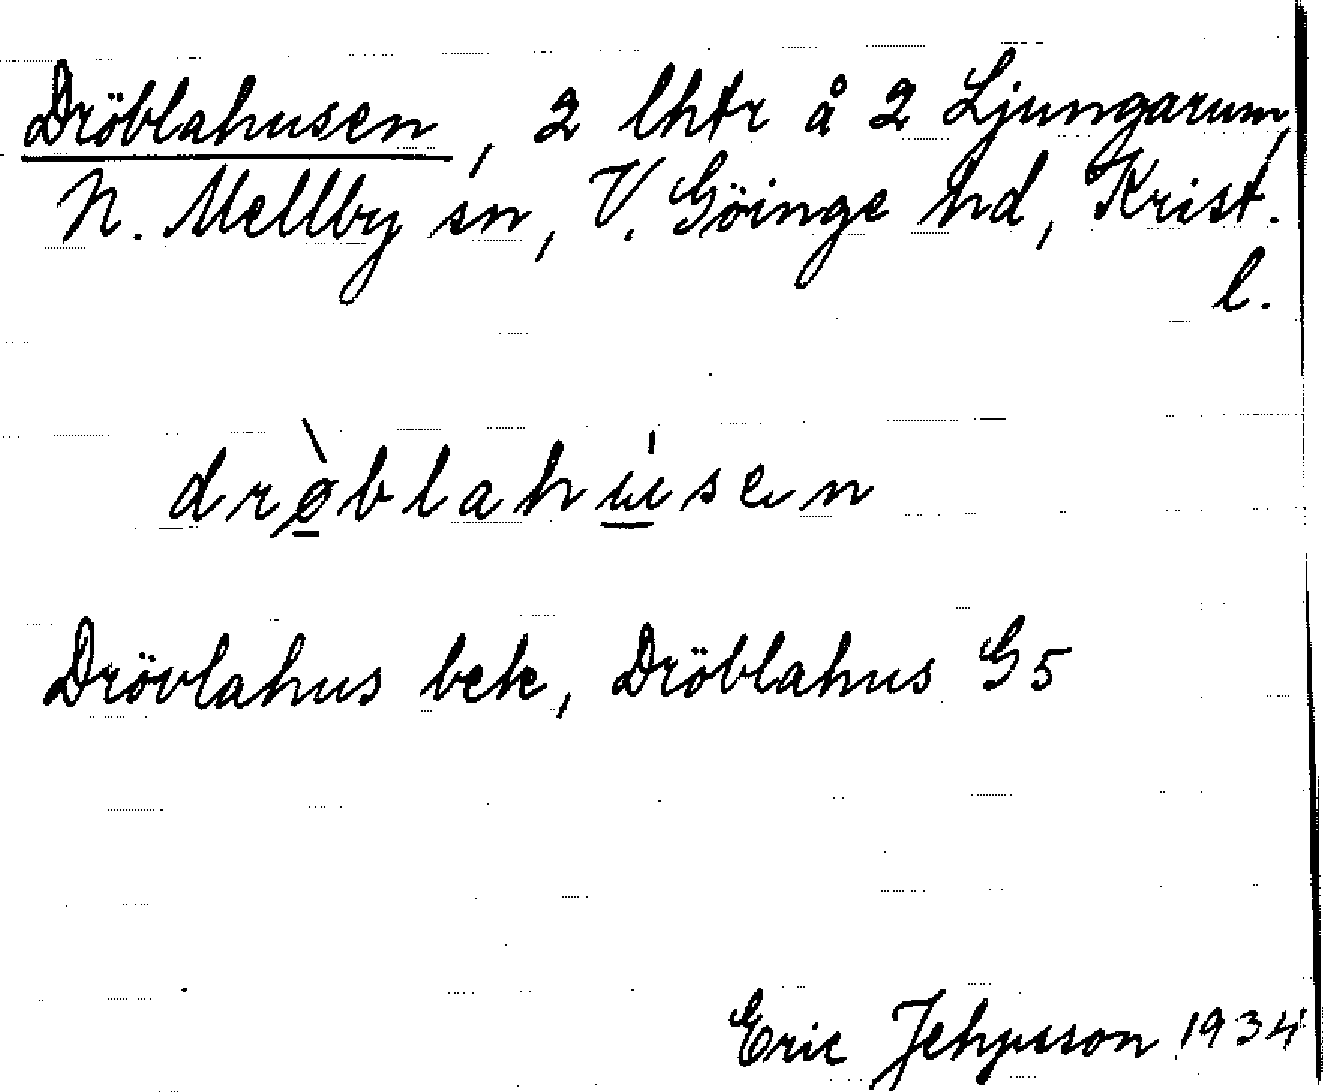 Dröblahusen, 2 lhtr å 2 Ljungarum,
N. Mellby sn, V. Göinge hd, Krist.
l.
drø̀blahu̇sen
Drövlahus bek, Dröblahus G5
Eric 1934